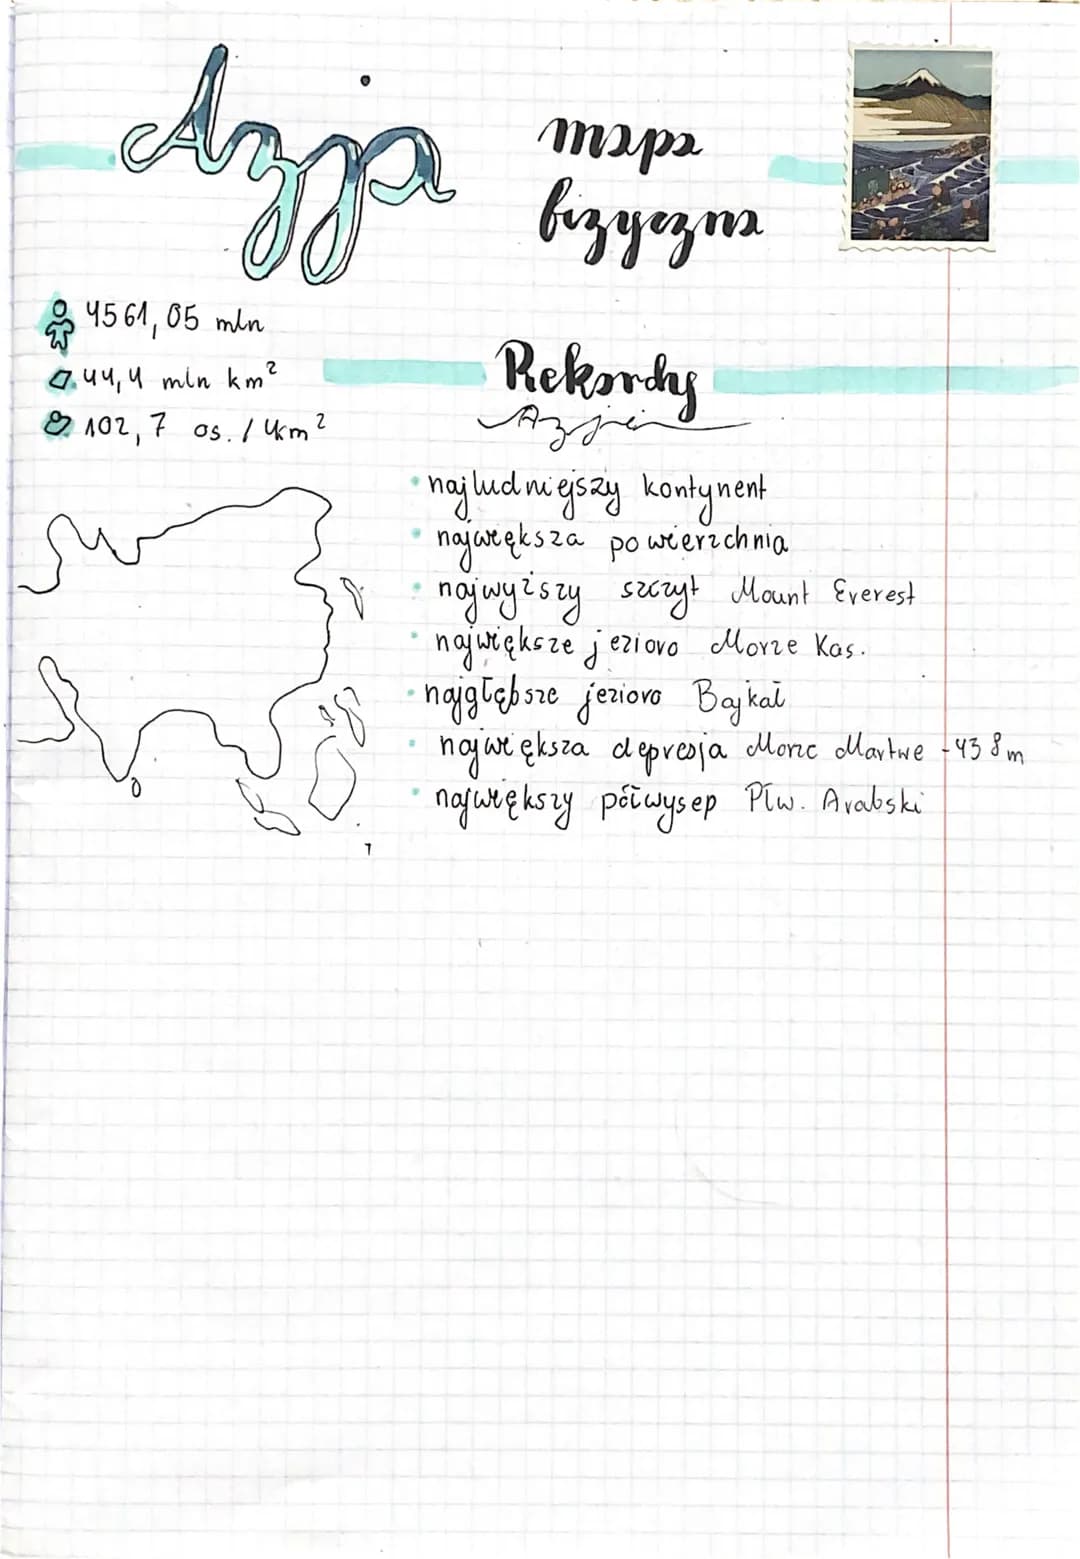 Azja
mapa
fizyczna
4561,05 mln
44,4 mln km²
102,7 os. / km²
Rekordy
Azji
• najludniejszy kontynent
• największa powierzchnia
• najwyższy szczyt Mount Everest
• największe jezioro Morze Kas.
• najgłębsze jezioro Bajkał
• największa depresja Morze Martwe -438 m
• największy półwysep Płw. Arabski